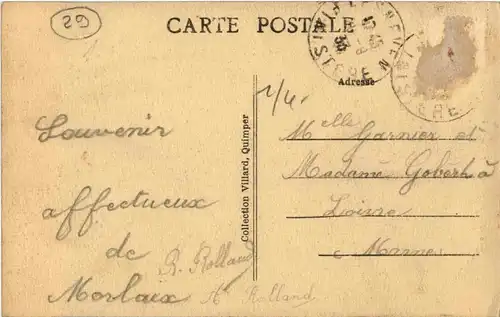 29
CARTE POSTALE
FINISTÈRE
Adresse
1/4.
Souvenir
affectueux
de
Morlaix
R. Rolland
A. Rolland
Collection Villard, Quimper
Melle Garnier et
Madame
à
Marne